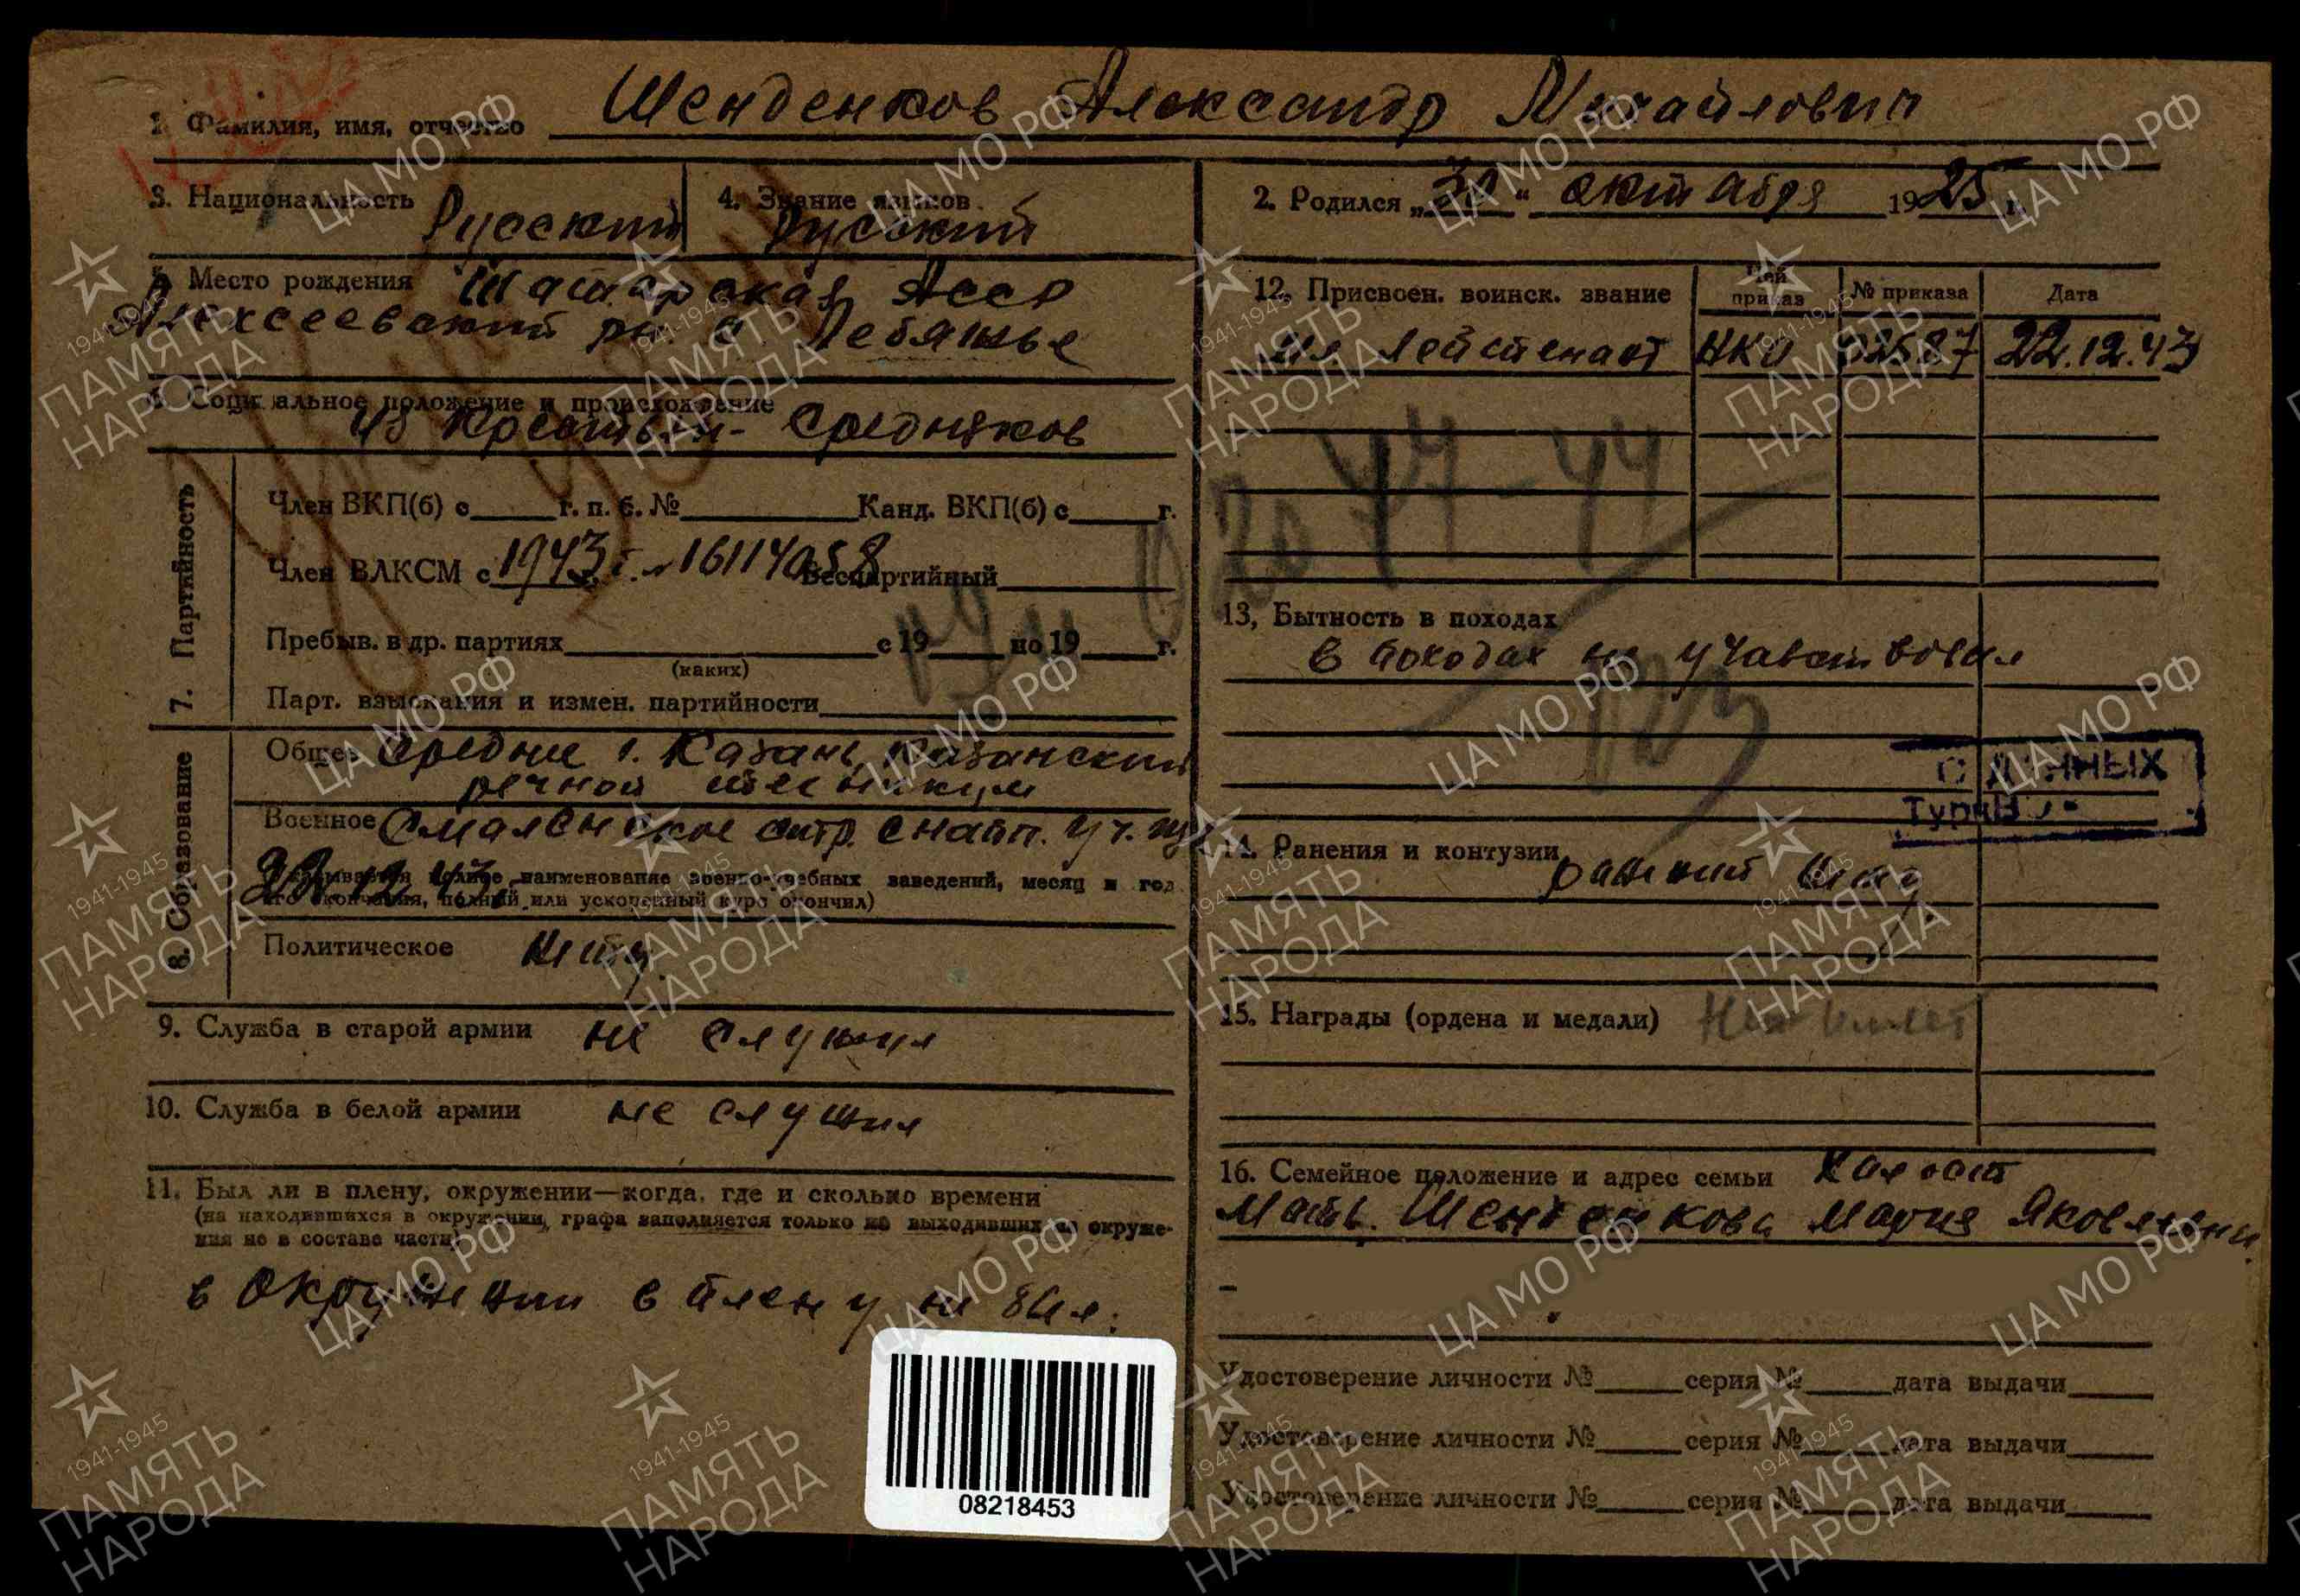 1. Фамилия, имя, отчество Шенденков Александр Михайлович
3. Национальность Русский
4. Знание языков Русский
5. Место рождения Татарская АССР
Алексеевский рн. с. Лебяжье
6. Социальное положение и происхождение
Из Крестьян- Средняков
7. Партийность
Член ВКП(б) с г. п. б. № Канд. ВКП(б) с г.
Член ВЛКСМ с 1943 г. № 16114058 Беспартийный
Пребыв. в др. партиях с 19 по 19 г.
(каких)
Парт. взыскания и измен. партийности
8. Образование
Общее Средние г. Казань, Казанский
речной техникум
Военное Смаленское стр. снайп. уч.
22.12.43.
(Указывается полное наименование военно-учебных заведений, месяц и год
его окончания, полный или ускоренный курс окончил)
Политическое Нету.
9. Служба в старой армии не служил
10. Служба в белой армии не служил
11. Был ли в плену, окружении—когда, где и сколько времени
(на находившихся в окружении, графа заполняется только на выходивших из окруже-
ния не в составе части)
в окружении в плену не был.
08218453
2. Родился „30“ октября 1925 г.
12. Присвоен. воинск. звание
Чей приказ
№ приказа
Дата
Мл лейтенант НКО 02587 22.12.43
44-44
123
13, Бытность в походах
в походах не участвовал
14. Ранения и контузии
ранений нету
15. Награды (ордена и медали) Не имеет
16. Семейное положение и адрес семьи Халост
Мать. Шенденкова Мария Яковлевна
Удостоверение личности № серия № дата выдачи
Удостоверение личности № серия № дата выдачи
Удостоверение личности № серия № дата выдачи
ЦА МО РФ
1941-1945
ПАМЯТЬ
НАРОДА